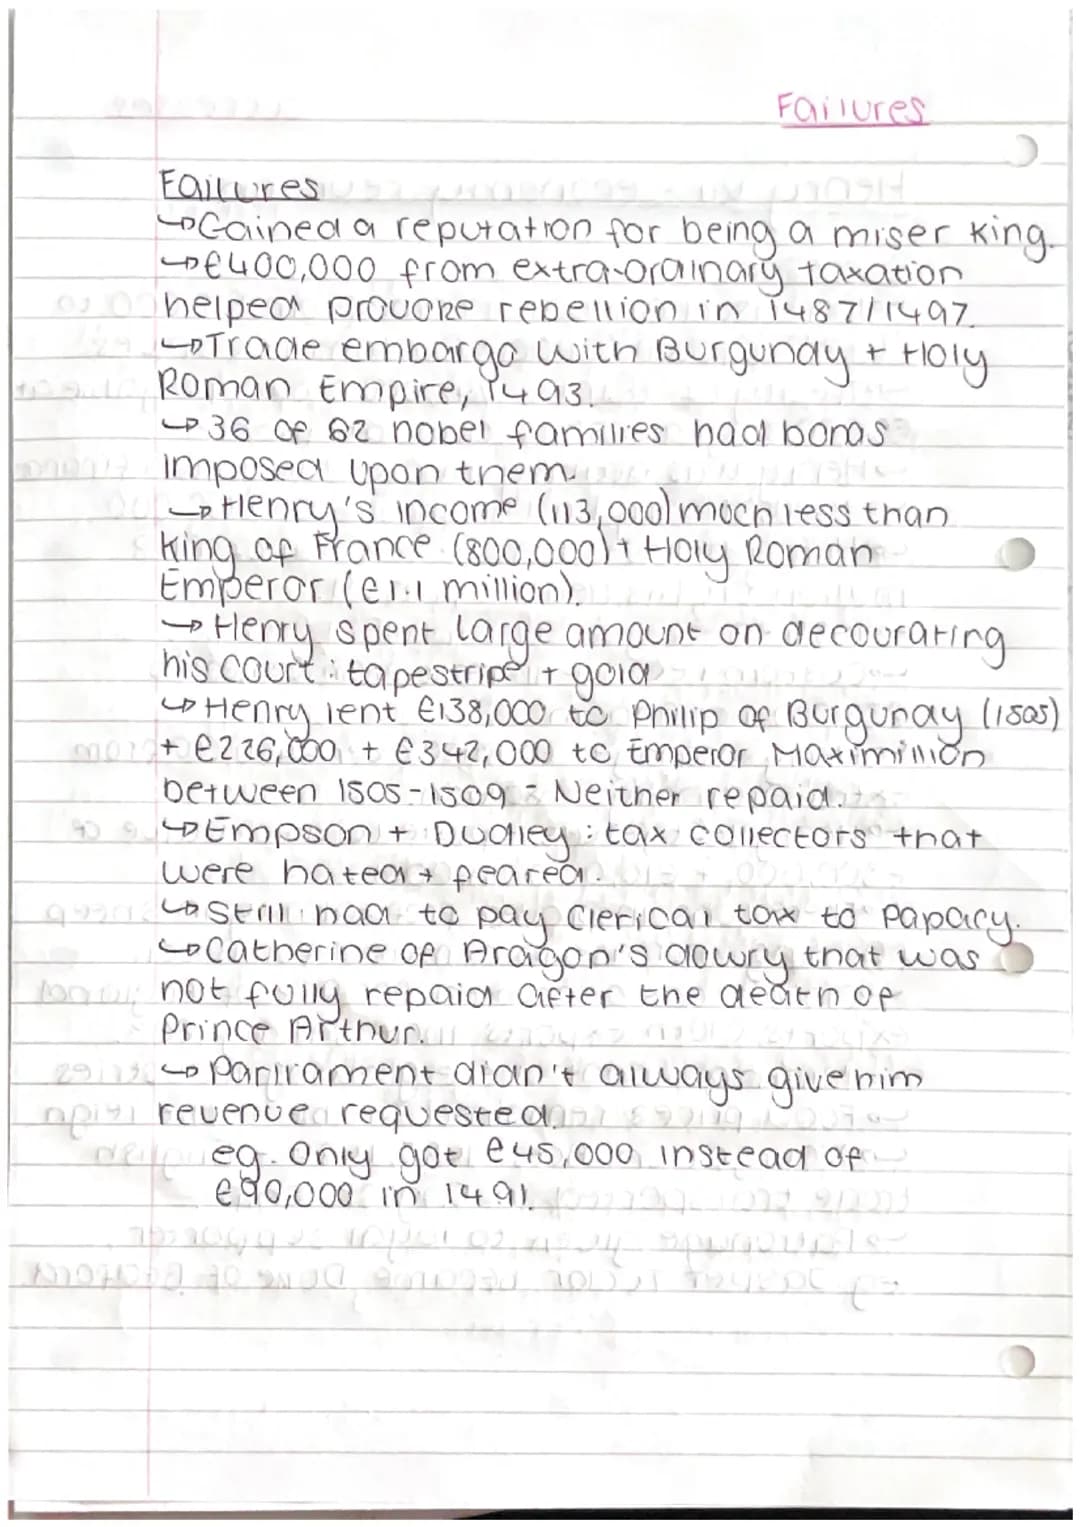 Failures
Failures
↳Gained a reputation for being a miser king.
↳£400,000 from extra-ordinary taxation
helped provoke rebellion in 1487/1497.
↳Trade embargo with Burgundy + Holy
Roman Empire, 1493.
↳36 of 62 nobel families had bonds
imposed upon them.
↳Henry's income (113,000) much less than
King of France (800,000) + Holy Roman
Emperor (£1.1 million).
↳Henry spent large amount on decourating
his court : tapestripe + gold
↳Henry lent £138,000 to Philip of Burgundy (1505)
+ £226,000 + £342,000 to Emperor Maximillion
between 1505-1509 = Neither repaid.
↳Empson + Dudley : tax collectors that
were hated + feared.
↳Still had to pay Clerical tax to Papacy.
↳Catherine of Aragon's dowry that was
not fully repaid after the death of
Prince Arthur.
↳Parlrament didn't always give him
revenue requested.
eg. Only got £45,000 instead of
£90,000 in 1491.